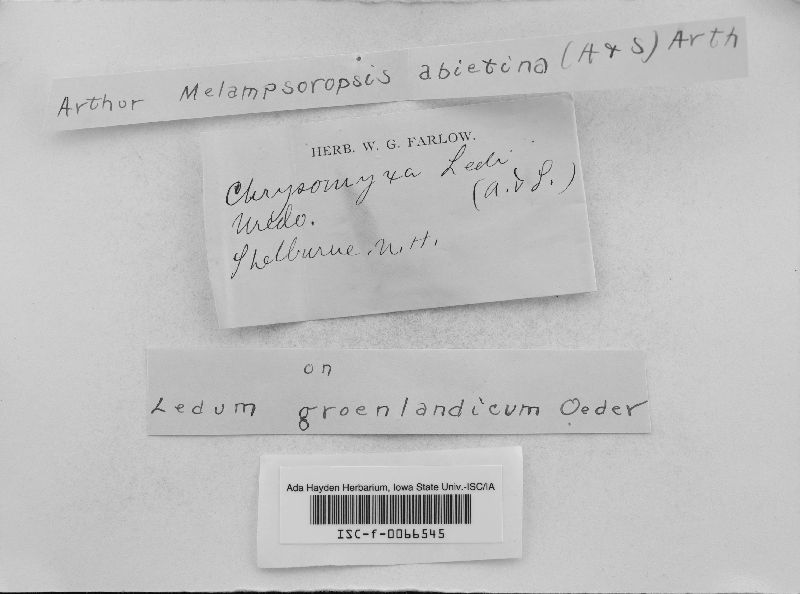 Arthur Melampsoropsis abietina (A & S) Arth
HERB. W. G. FARLOW.
Chrysomyxa Ledi
(A. & S.)
Uredo.
Shelburne, N.H.
on
Ledum groenlandicum Oeder
Ada Hayden Herbarium, Iowa State Univ.-ISC/IA
ISC-f-0066545